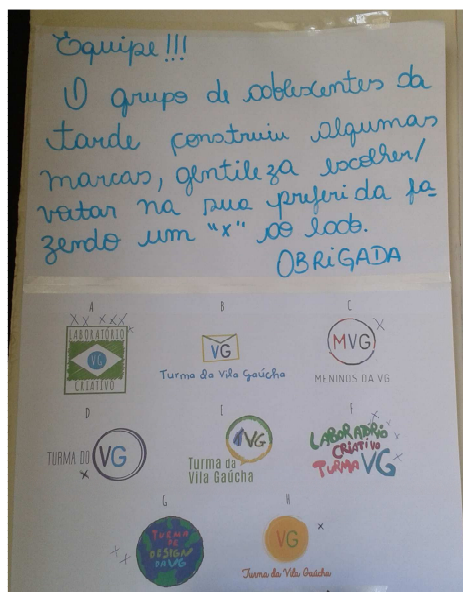 Equipe!!!
O grupo de adolescentes da
tarde construiu algumas
marcas, gentileza escolher/
votar na sua preferida fa-
zendo um "x" ao lado.
OBRIGADA
A
X X X X X
X
LABORATÓRIO
VG
CRIATIVO
B
VG
Turma da Vila Gaúcha
C
X
MVG
MENINOS DA VG
D
X
TURMA DO VG
X
E
VG
Turma da
Vila Gaúcha
F
X
X
X
LABORATÓRIO
CRIATIVO
TURMA VG
G
X X
TURMA
DE
DESIGN
DA VG
H
X
VG
Turma da Vila Gaúcha